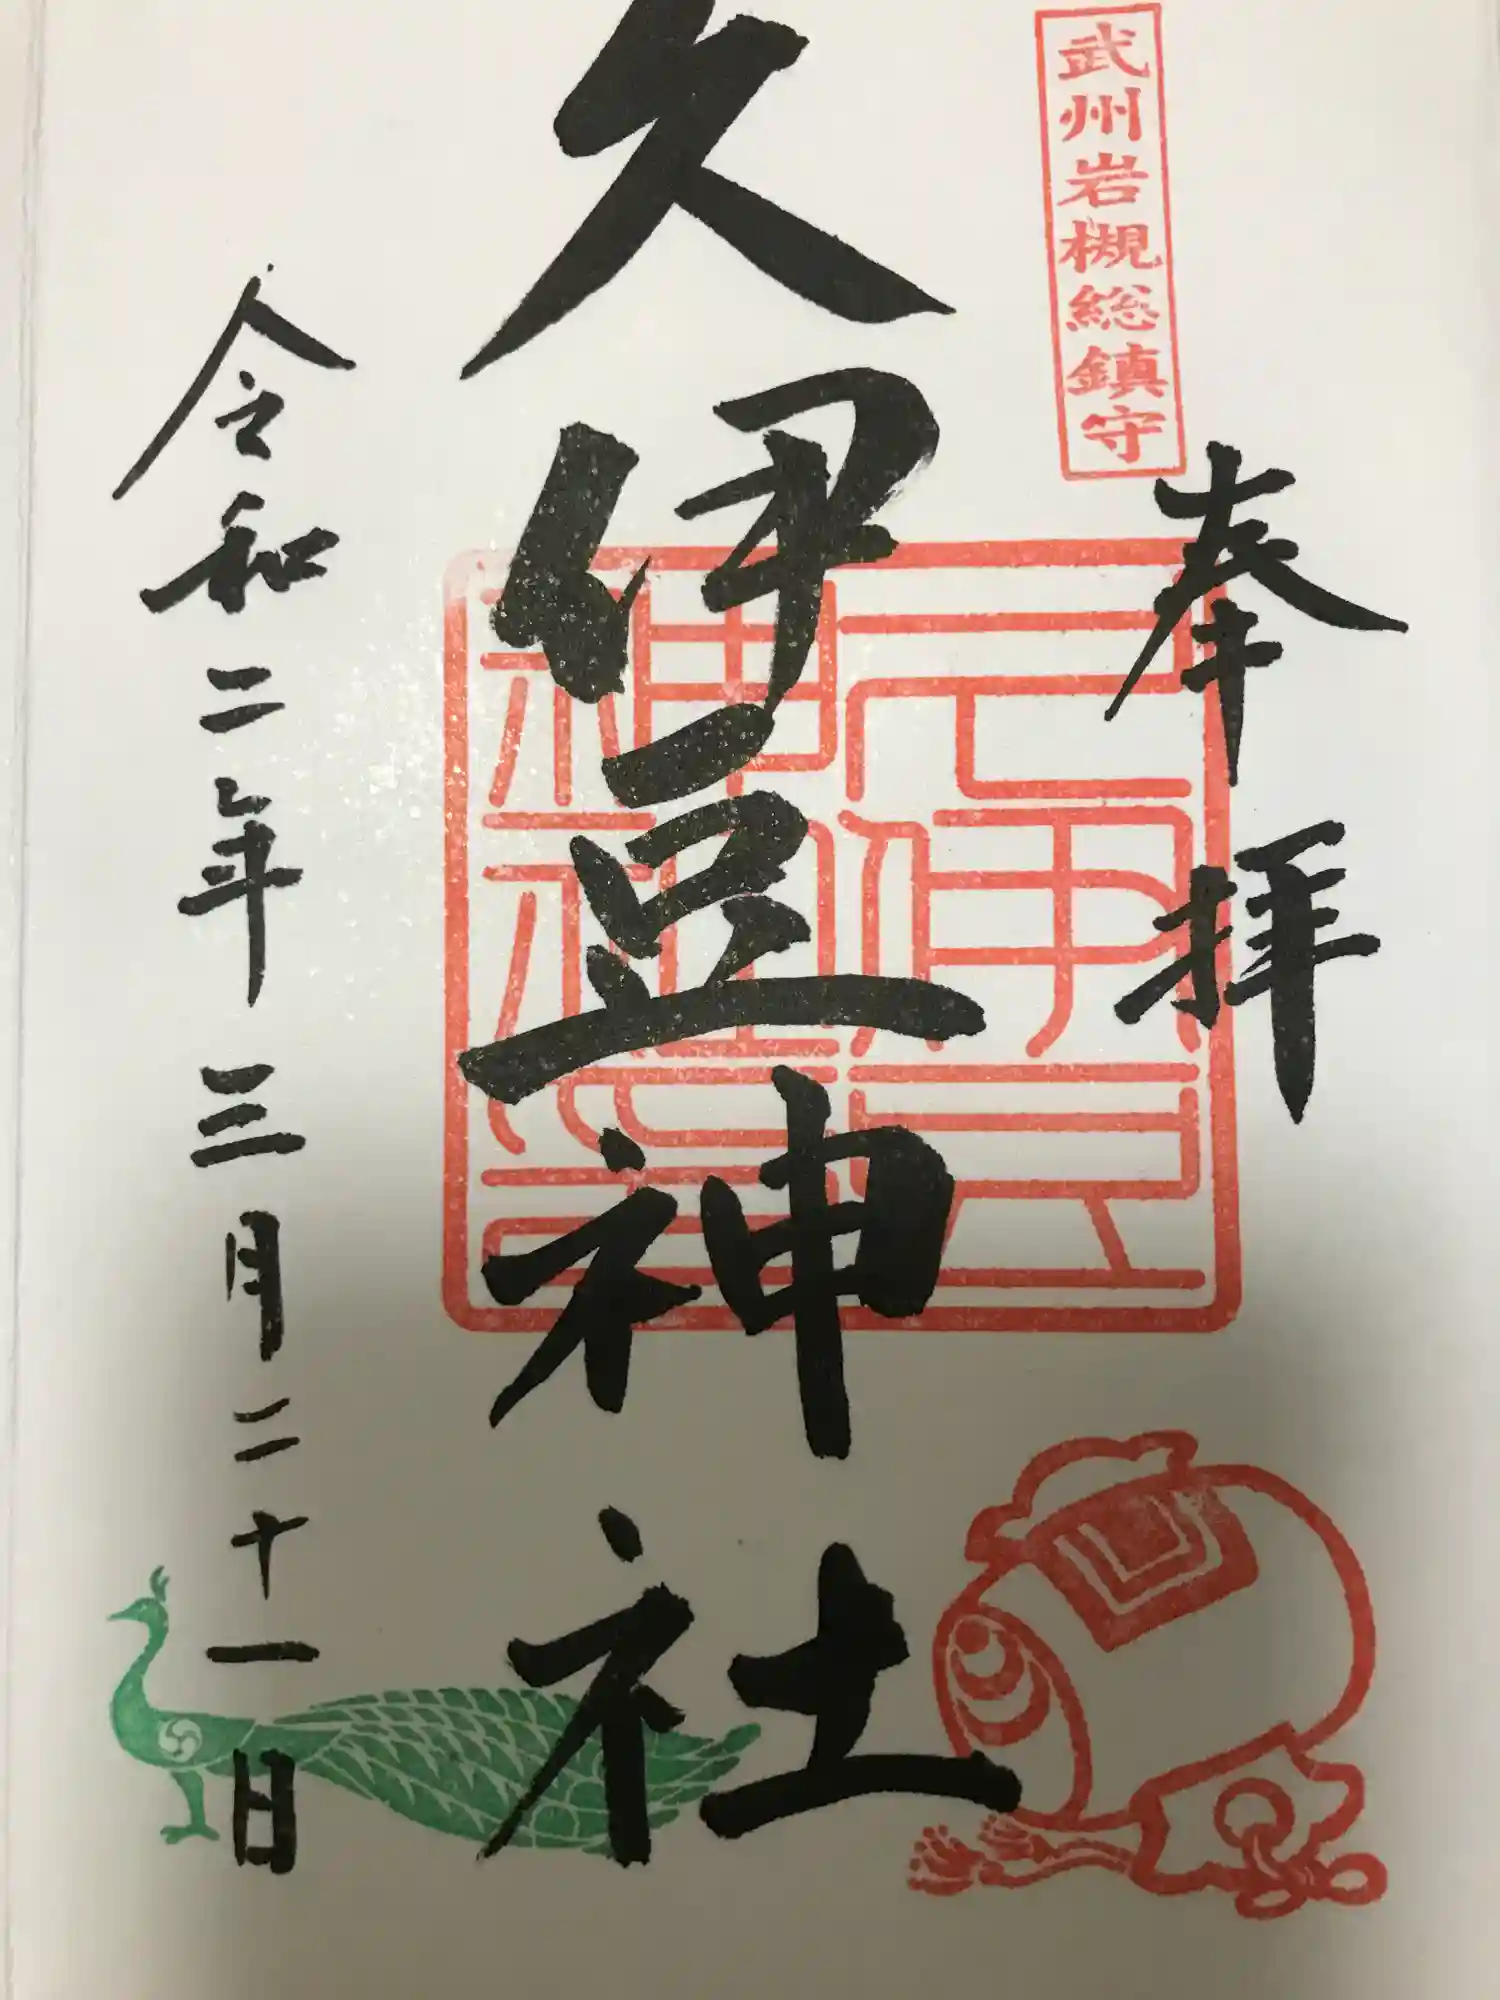 武州岩槻総鎮守
奉拝
久伊豆神社
久伊豆神社印
令和二年三月二十一日